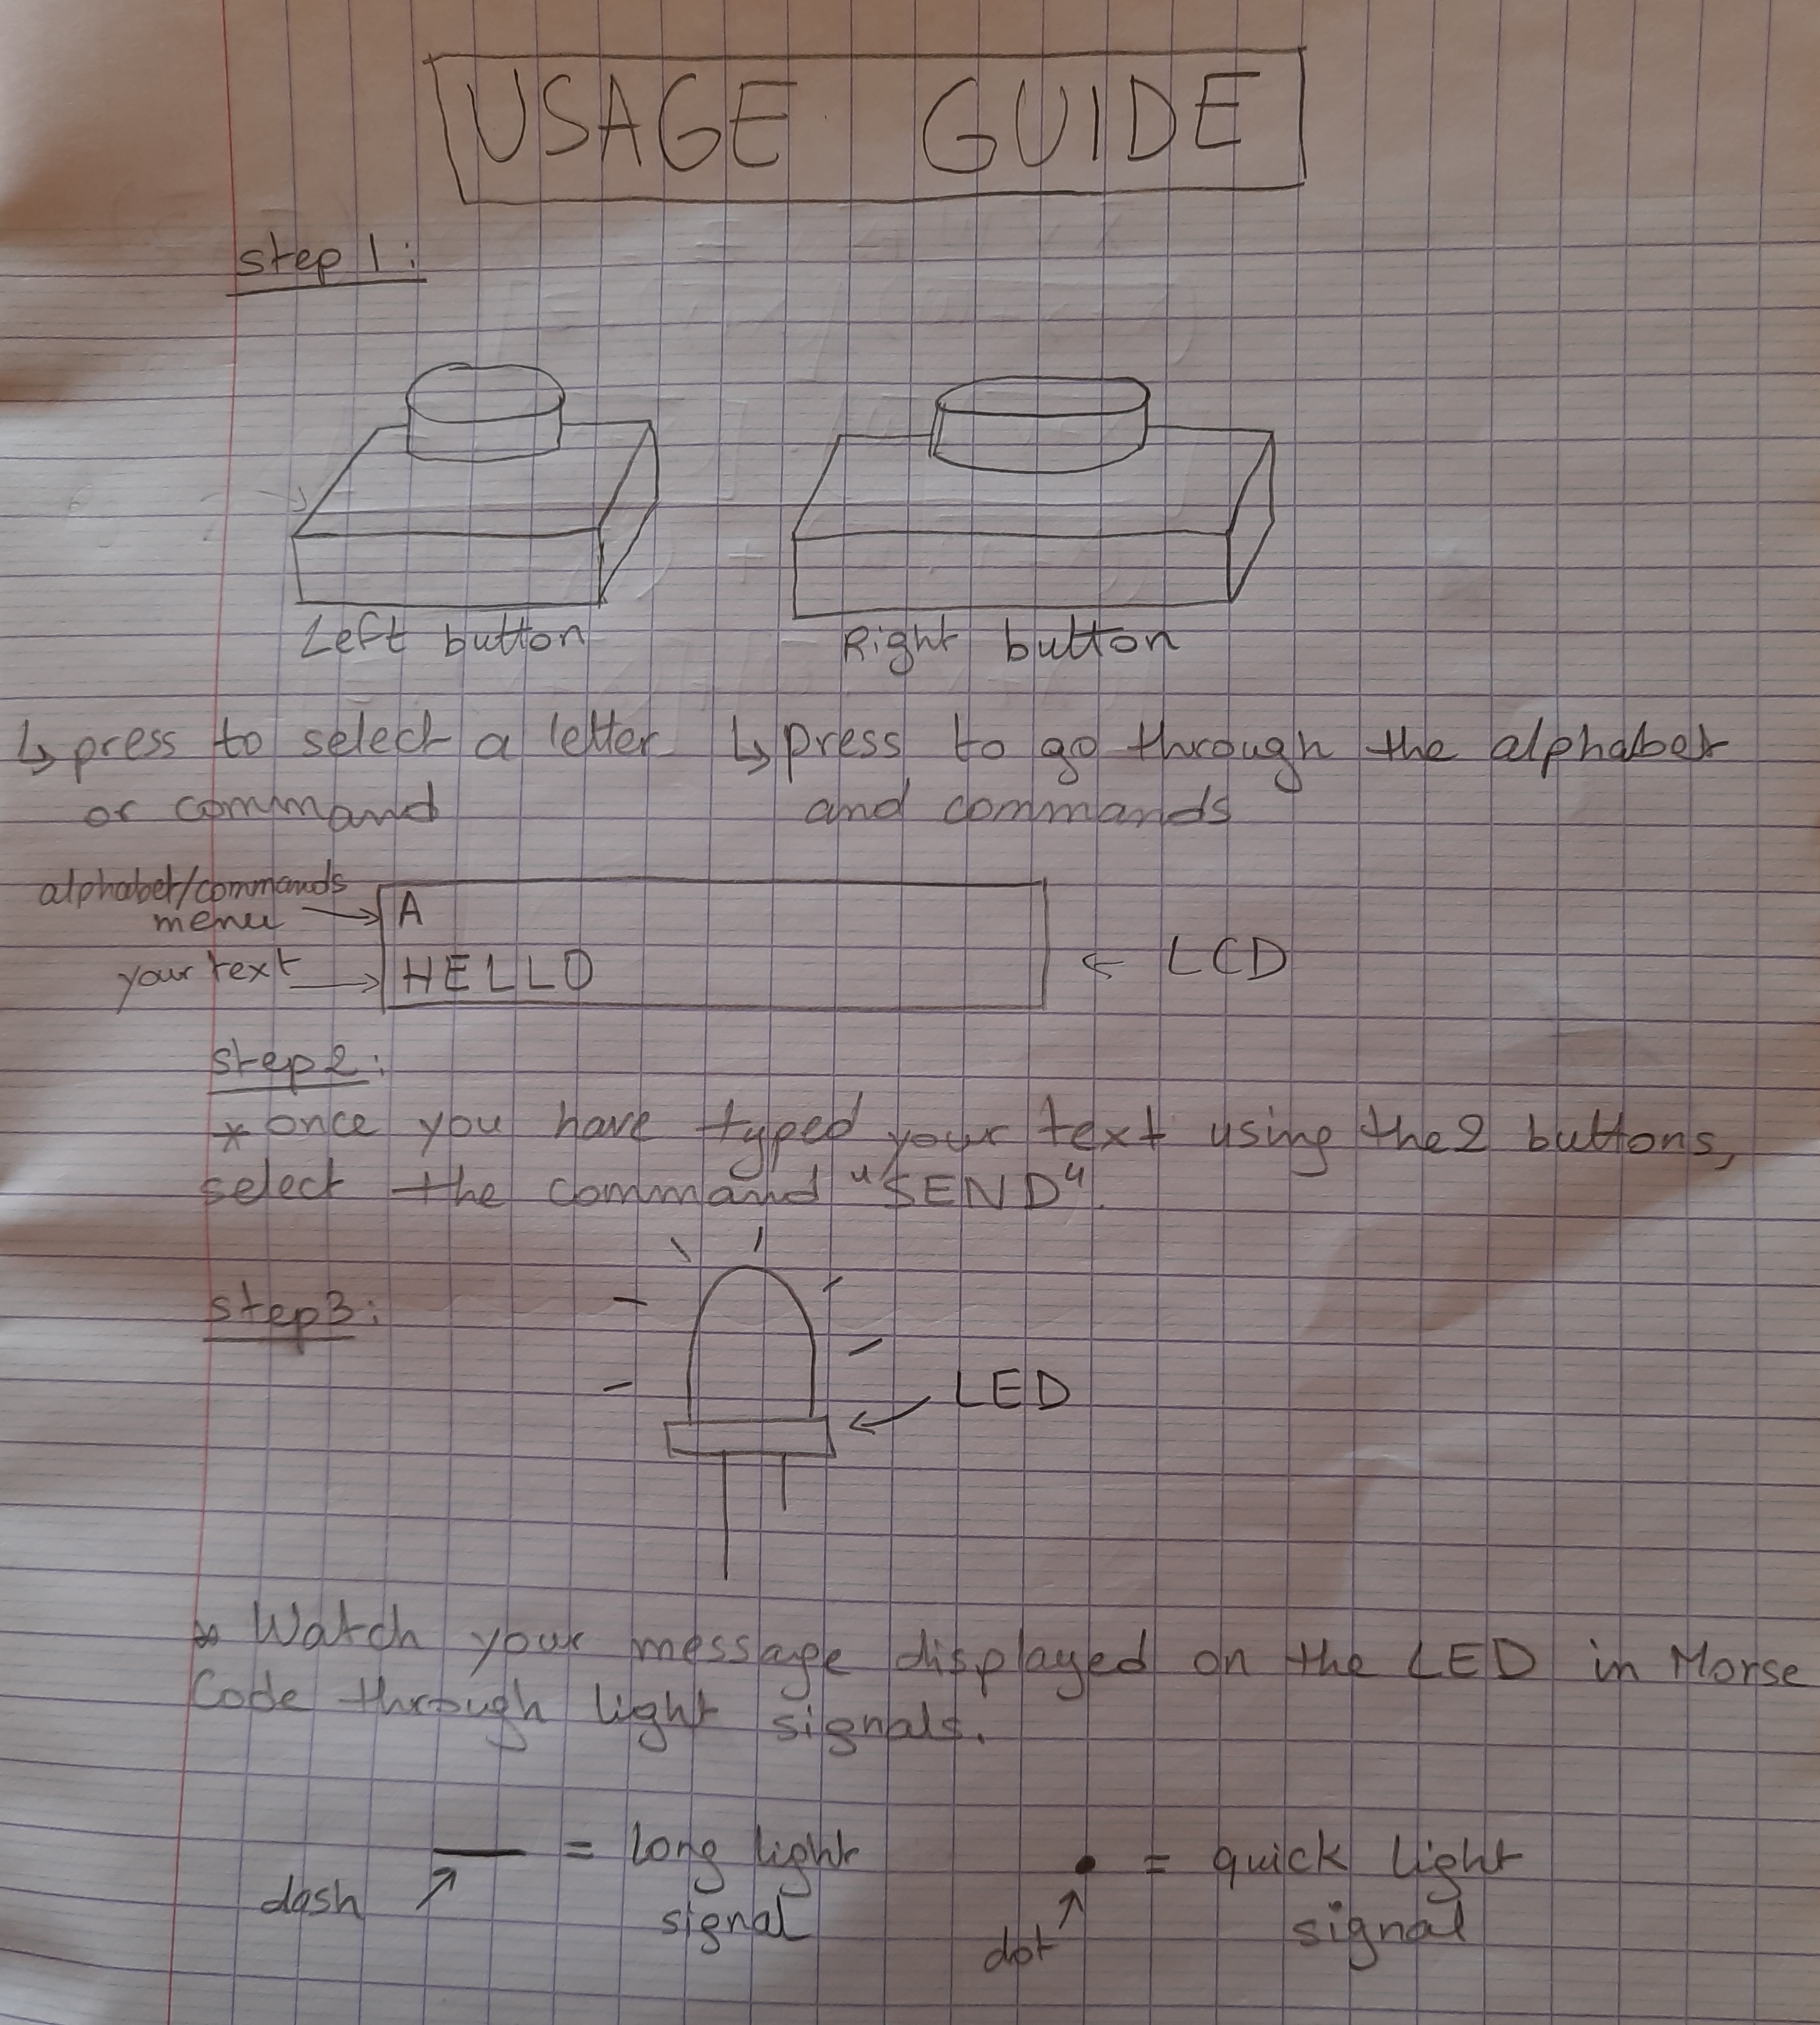 USAGE GUIDE
step 1:
Left button
Right button
↳ press to select a letter
or command
↳ press to go through the alphabet
and commands
alphabet/commands
menu →
A
your text →
HELLO
← LCD
step2:
* once you have typed your text using the 2 buttons,
select the command "SEND".
step3:
LED
* Watch your message displayed on the LED in Morse
Code through light signals.
— = long light
signal
dash
• = quick light
signal
dot